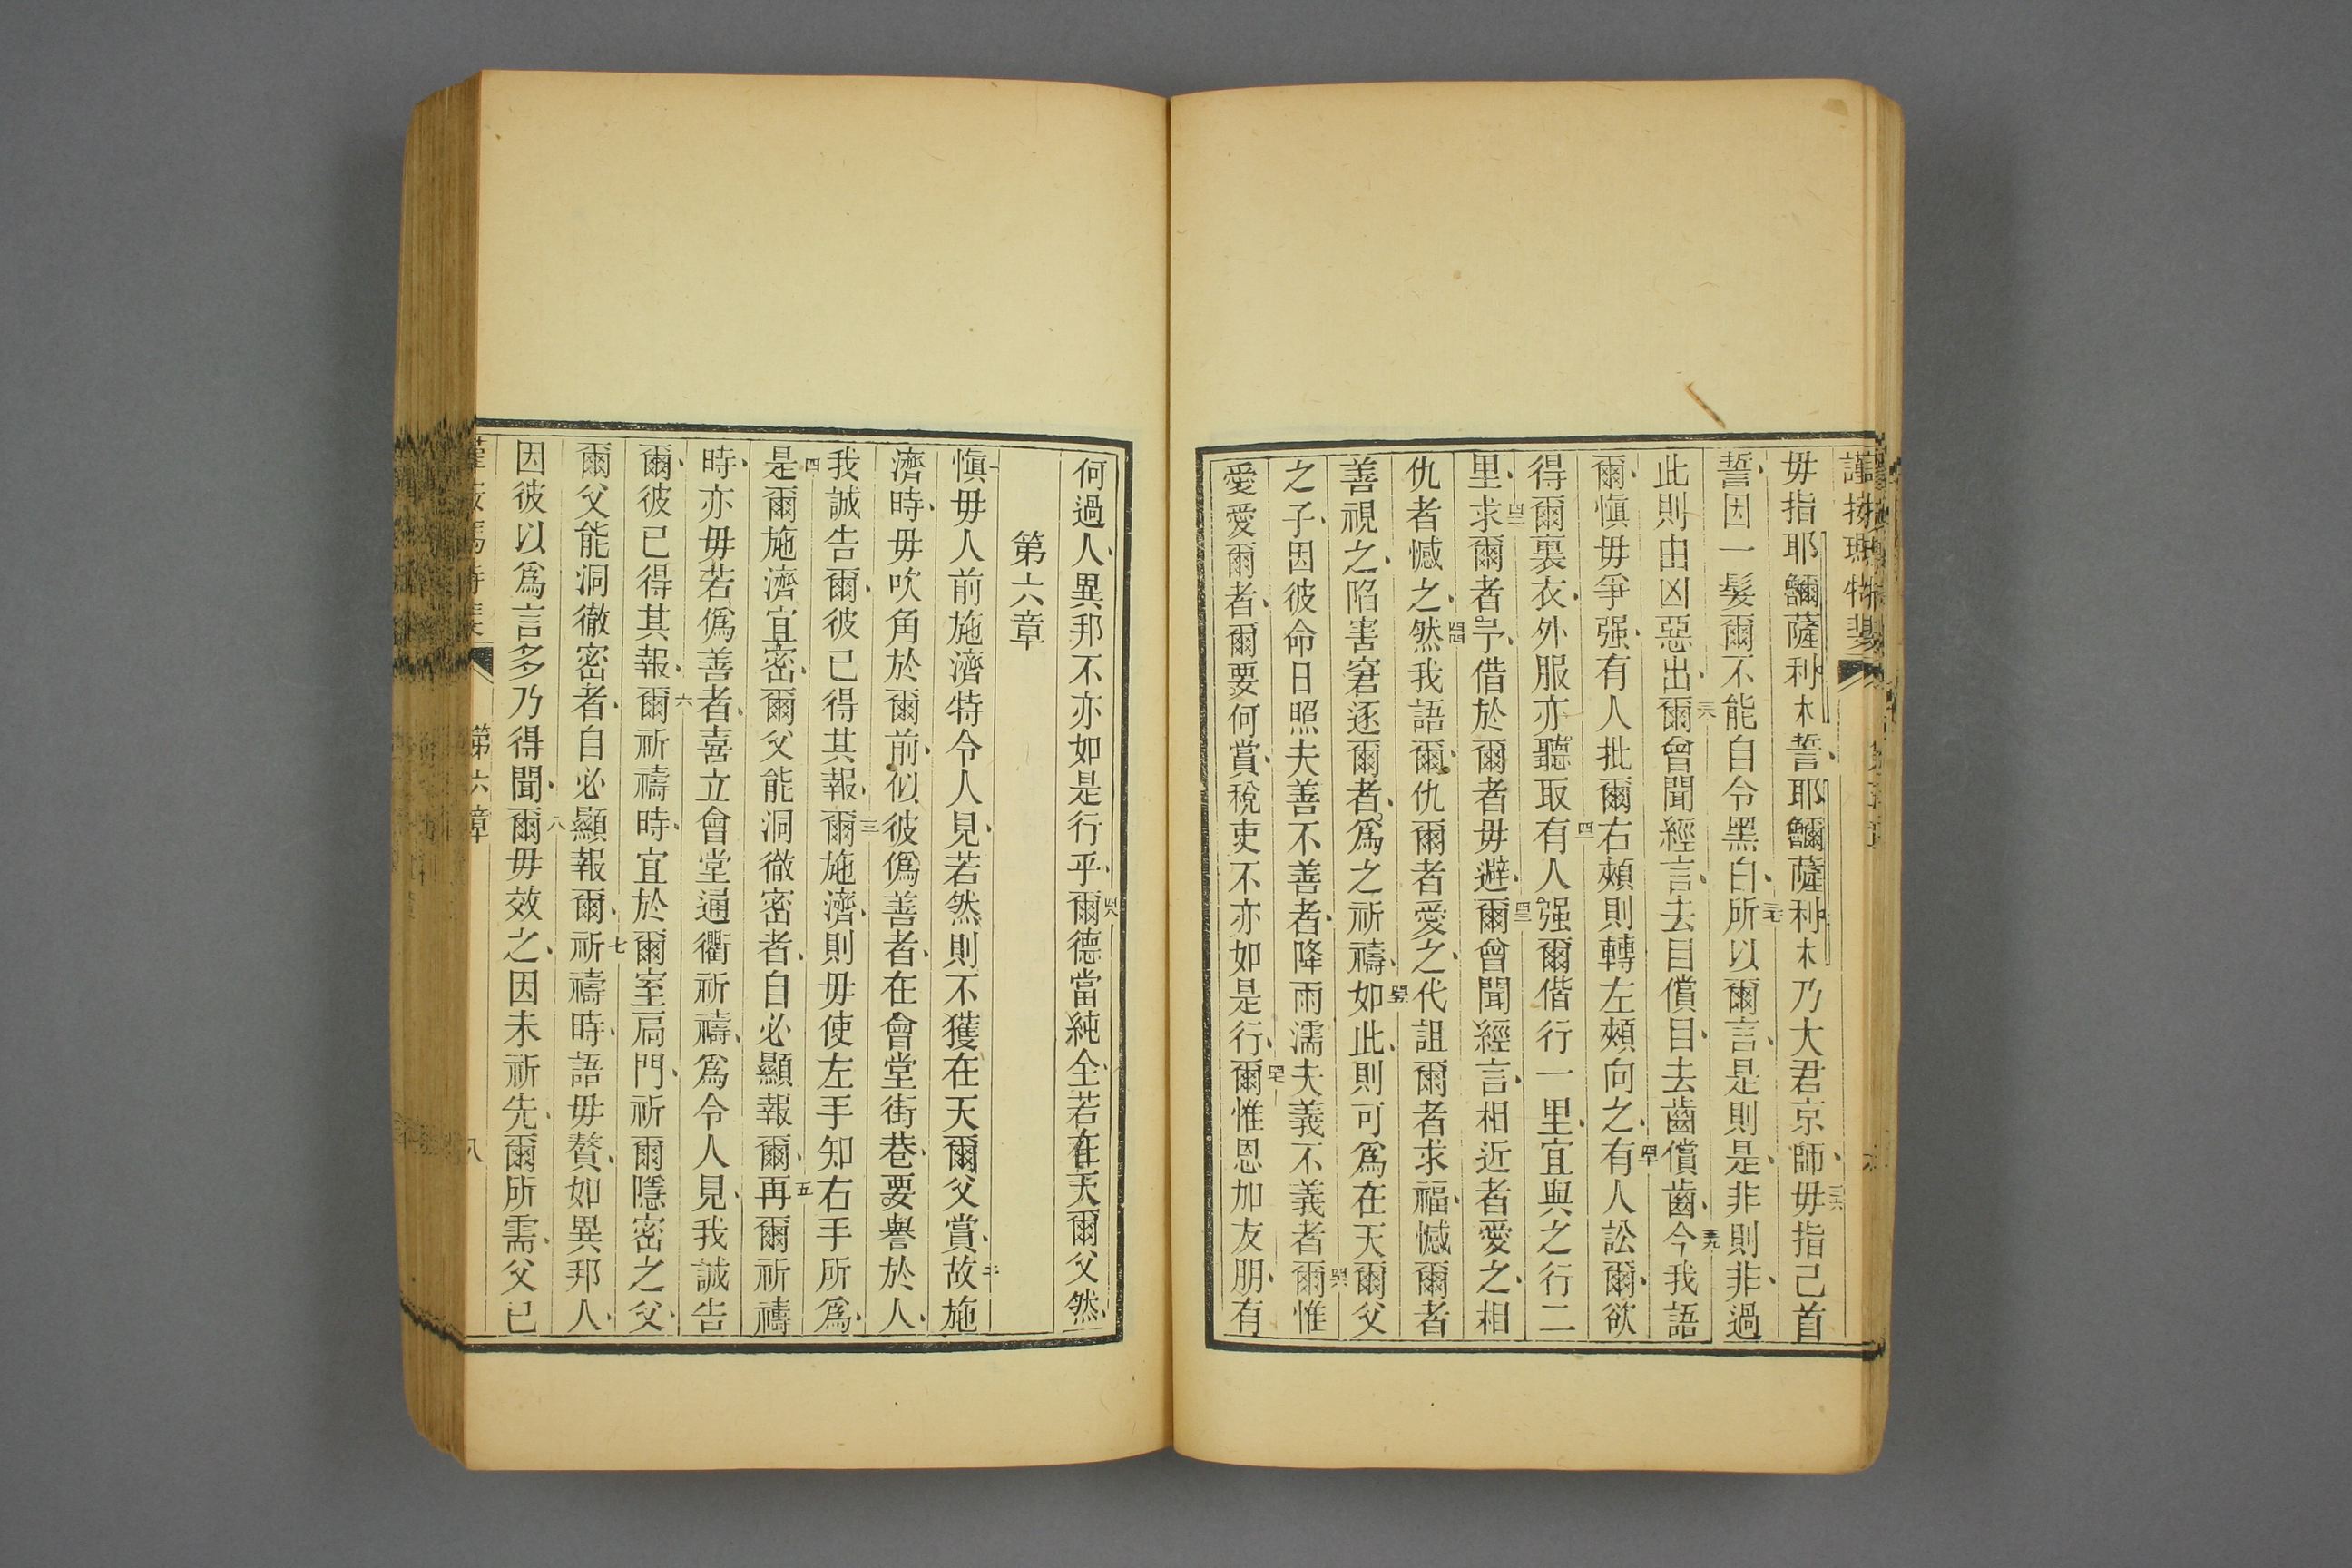 毋指耶䤉薩利木誓、耶䤉薩利木乃大君京師、三六毋指己首
誓、因一髮爾不能自令黑白、三七所以爾言、是則是、非則非、過
此則由凶惡出、三八爾曾聞經言、去目償目、去齒償齒、三九今我語
爾、慎毋爭强、有人批爾右頰則轉左頰向之、四十有人訟爾、欲
得爾裏衣、外服亦聽取、四一有人强爾偕行一里、宜與之行二
里、四二求爾者予、借於爾者毋避、四三爾曾聞經言、相近者愛之、相
仇者憾之、四四然我語爾、仇爾者愛之、代詛爾者求福、憾爾者
善視之、陷害窘逐爾者、爲之祈禱、四五如此、則可爲在天爾父
之子、因彼命日照夫善不善者、降雨濡夫義不義者、四六爾惟
愛愛爾者、爾要何賞、稅吏不亦如是行、四七爾惟恩加友朋、有
何過人、異邦不亦如是行乎、四八爾德當純全、若在天爾父然、
第六章
一慎毋人前施濟特令人見、若然則不獲在天爾父賞、二故施
濟時、毋吹角於爾前、似彼僞善者、在會堂街巷、要譽於人、
我誠告爾、彼已得其報、三爾施濟、則毋使左手知右手所爲、
四是爾施濟宜密、爾父能洞徹密者、自必顯報爾、五再爾祈禱
時、亦毋若僞善者、喜立會堂通衢祈禱、爲令人見、我誠告
爾、彼已得其報、六爾祈禱時、宜於爾室扃門、祈爾隱密之父、
爾父能洞徹密者、自必顯報爾、七祈禱時、語毋贅、如異邦人、
因彼以爲言多乃得聞、八爾毋效之、因未祈先、爾所需、父已
第六章
八